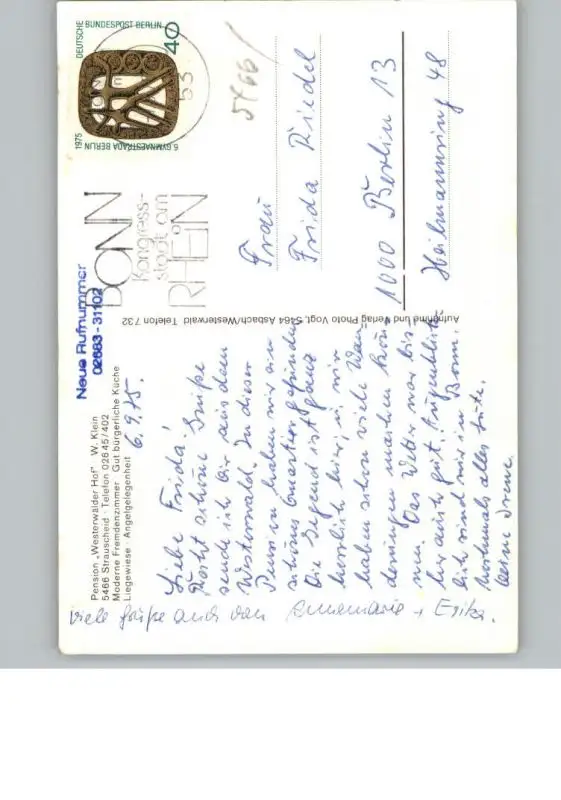 Pension „Westerwälder Hof" W. Klein
5466 Strauscheid · Telefon 02645/402
Moderne Fremdenzimmer Gut bürgerliche Küche
Liegewiese · Angelgelegenheit
Neue Rufnummer
02683-31102
6.9.75.
Liebe Frida!
Recht schöne Grüße
sende ich Dir aus dem
Westerwald. In dieser
Pension haben wir ein
schönes Quartier gefunden
Die Gegend ist ganz
herrlich hier, u. wir
haben schon viele Wan-
derungen machen kön-
nen. Das Wetter war bis-
her auch gut. Augenblick-
lich sind wir in Bonn.
Nochmals alles Gute.
Deine Irene.
Viele Grüße auch von Annemarie + Erika.
Aufnahme und Verlag Photo Vogt, 5464 Asbach/Westerwald Telefon 732
DEUTSCHE BUNDESPOST BERLIN
40
6. GYMNAESTRADA BERLIN
1975
53
BONN
Kongress-
stadt am
RHEIN
5466/
Frau
Frida Riedel
1000 Berlin 13
Heilmannring 48